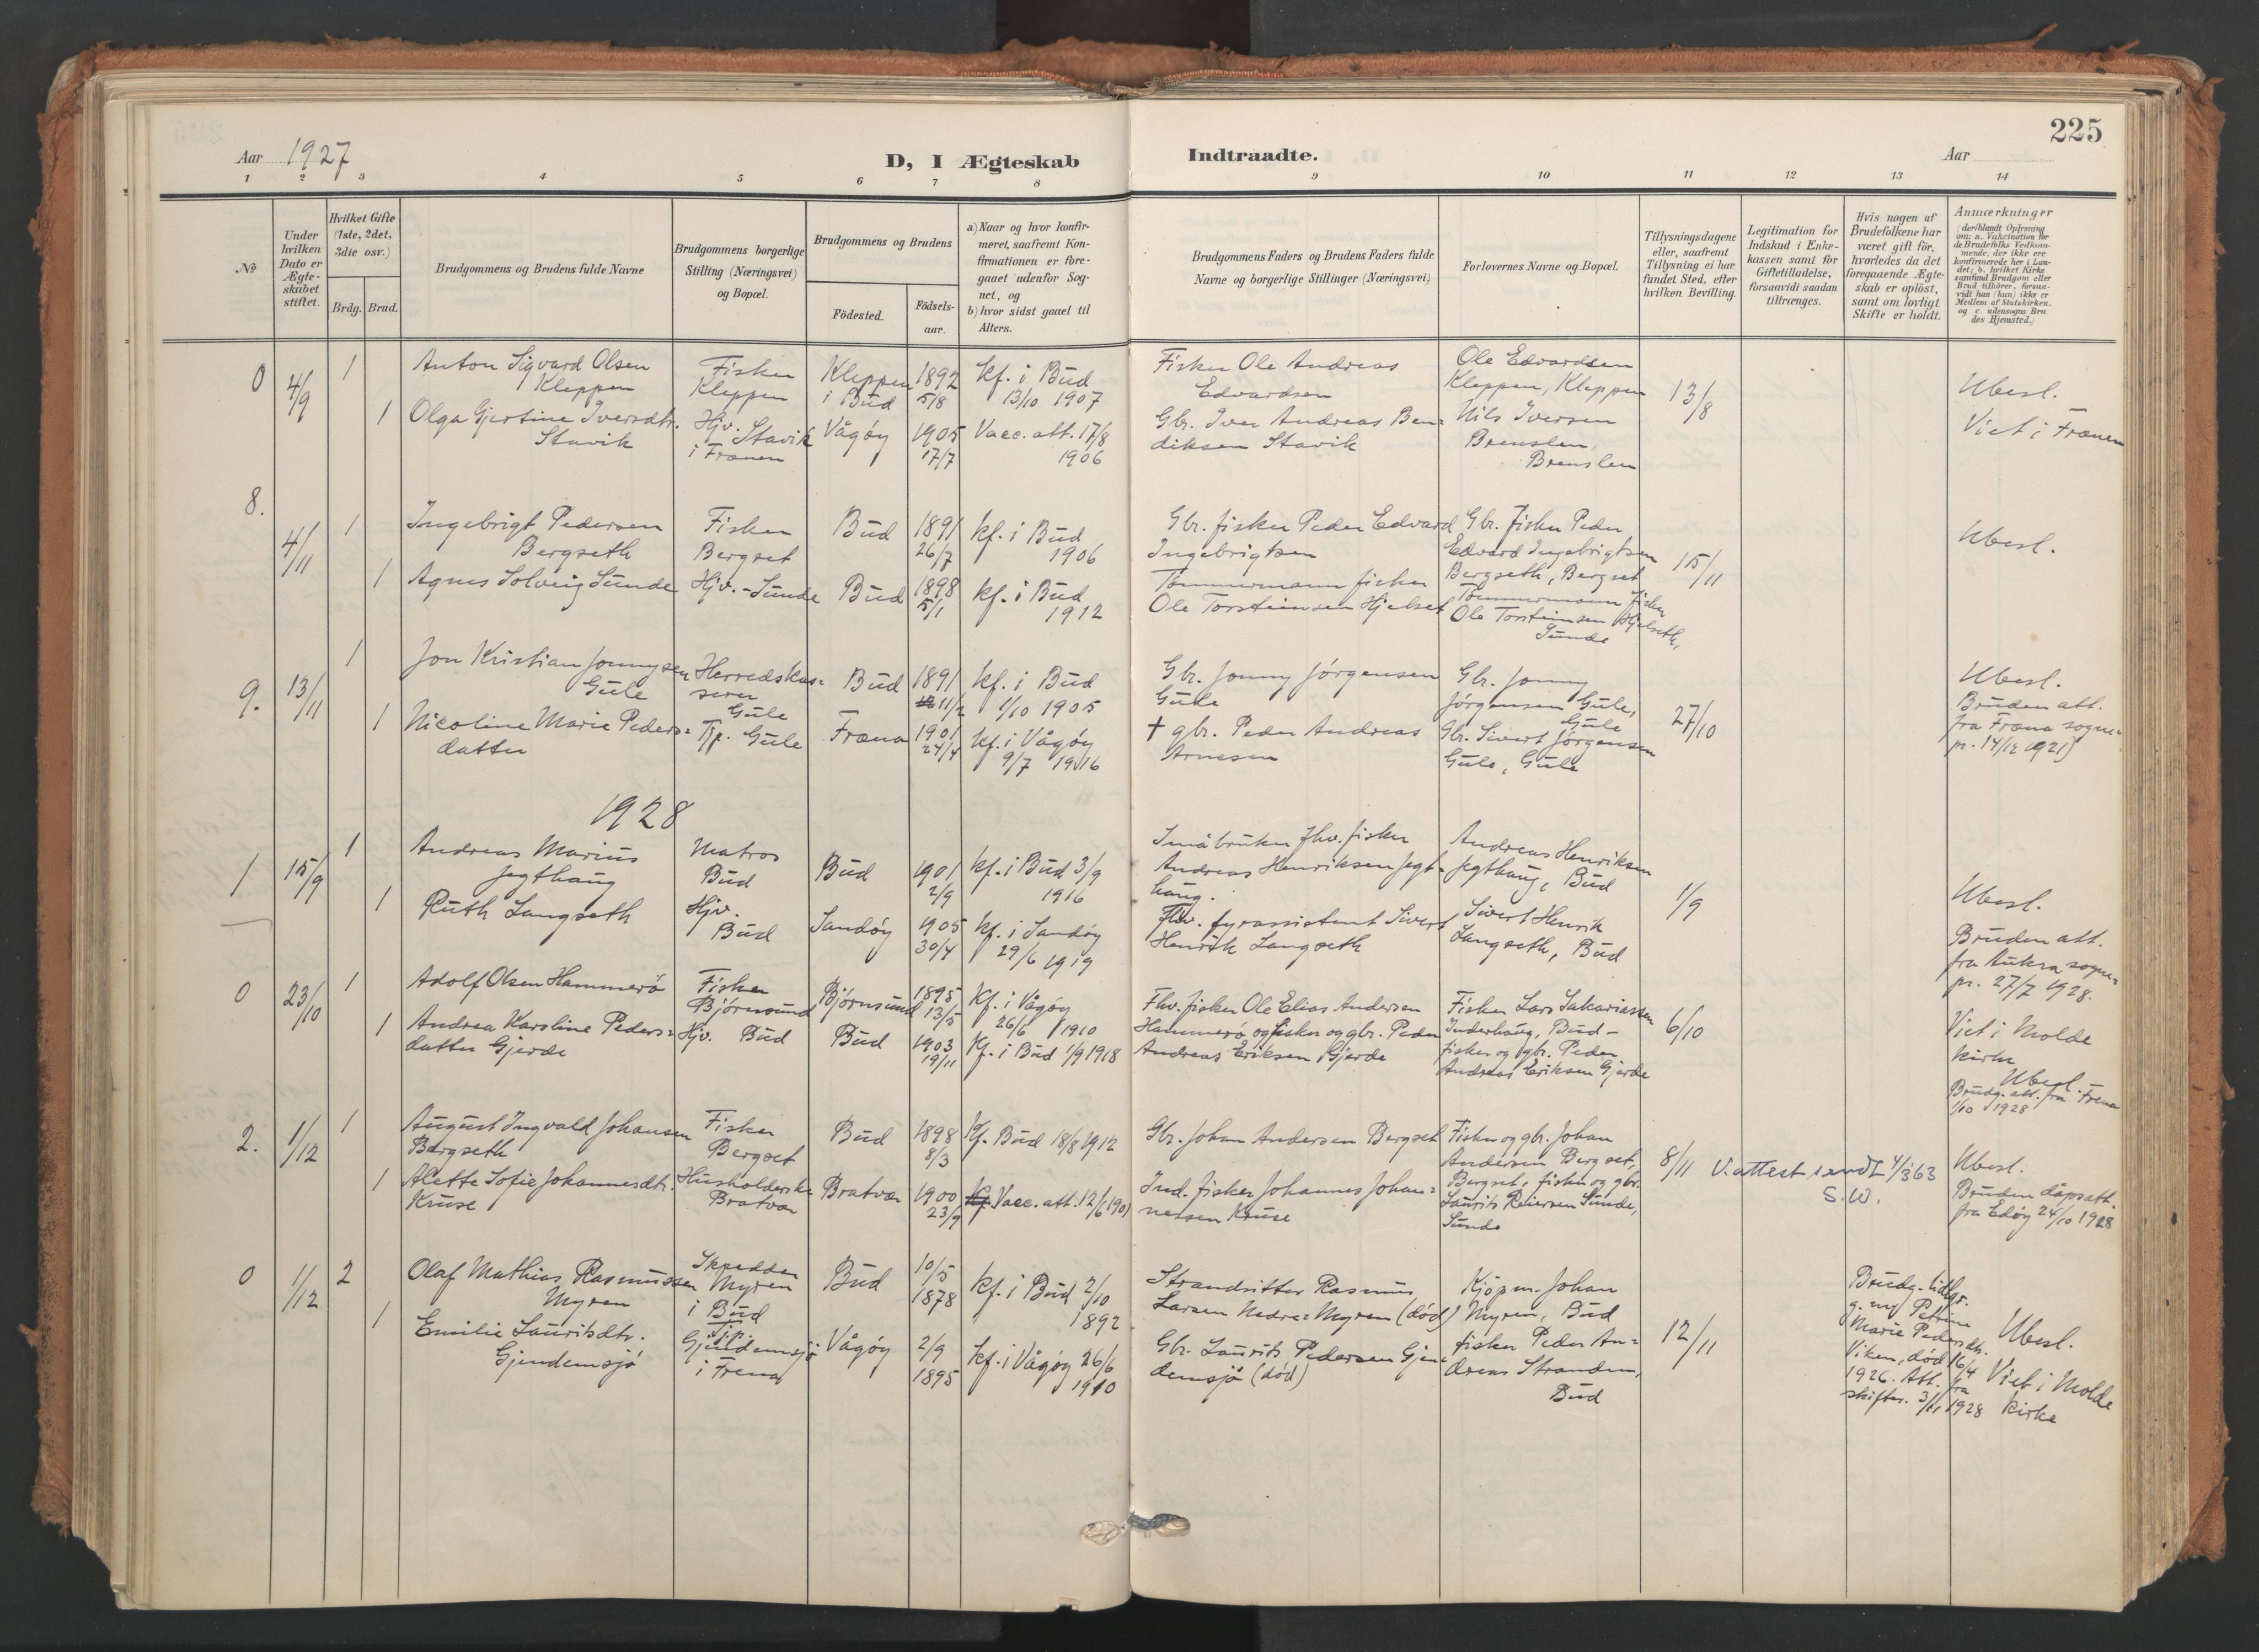 225
Aar 1927
D, I Ægteskab
Indtraadte.
Aar
1 2 3 4 5 6 7 8 9 10 11 12 13 14
No
Under hvilken Dato er Ægteskabet stiftet.
Hvilket Gifte (1ste, 2det, 3die osv.)
Brdg. Brud.
Brudgommens og Brudens fulde Navne
Brudgommens borgerlige Stilling (Næringsvei) og Bopæl.
Brudgommens og Brudens
Födested.
Födsels-aar.
a) Naar og hvor konfir-
meret, saafremt Kon-
firmationen er fore-
gaaet udenfor Sog-
net, og
b) hvor sidst gaaet til
Alters.
Brudgommens Faders og Brudens Faders fulde
Navne og borgerlige Stillinger (Næringsvei)
Forlovernes Navne og Bopæl.
Tillysningsdagene
eller, saafremt
Tillysning ei har
fundet Sted, efter
hvilken Bevilling.
Legitimation for
Indskud i Enke-
kassen samt for
Giftetilladelse,
forsaavidt saadan
tiltrænges.
Hvis nogen af
Brudefolkene har
været gift för,
hvorledes da det
foregaaende Ægte-
skab er oplöst,
samt om lovligt
Skifte er holdt.
Anmærkninger
(deriblandt Oplysning
om: a. Vakcination for
de Brudefolks Vedkom-
mende, der ikke ere
konfirmerede her i Lan-
det; b. hvilket Kirke
samfund Brudgom eller
Brud tilhörer, forsaa-
vidt han (hun) ikke er
Medlem af Statskirken.
og c. udensogns Bru
des Hjemsted.)
0 4/9 1
Anton Sigvard Olsen
Kleppen
Fisker
Kleppen
Kleppen
i Bud
1892
5/8
kf. i Bud
13/10 1907
Fisker Ole Andreas
Edvardsen
Ole Edvardsen
Kleppen, Kleppen
13/8
Ubesl.
1
Olga Gjertine Iversdtr.
Stavik
Hjv. Stavik
i Frænen
Vågøy
1905
17/7
Vacc. att. 17/8
1906
Gbr. Iver Andreas Ben=
diksen Stavik
Nils Iversen
Brenslen,
Brenslen
Viet i Frænen
8. 4/11 1
Ingebrigt Pedersen
Bergseth
Fisker
Bergset
Bud
1891
26/7
kf. i Bud
1906
Gbr. fisker Peder Edvard
Ingebrigtsen
Gbr. Fisker Peder
Edvard Ingebrigtsen
Bergseth, Bergset
15/11
Ubesl.
1
Agnes Solveig Sunde
Hjv. - Sunde
Bud
1898
5/1
kf. i Bud
1912
Tømmermann fisker
Ole Torsteinsen Hjelset
Tømmermann fisker
Ole Torsteinsen Hjelseth,
Sunde
9. 13/11 1
Jon Kristian Jonnysen
Gule
Herredskas=
serer
Gule
Bud
1891
11/2
kf. i Bud
1/10 1905
Gbr. Jonny Jørgensen
Gule
Gbr. Jonny
Jørgensen Gule,
Gule
27/10
Ubesl.
1
Nicoline Marie Peders=
datter
Tjp. Gule
Fræna
1901
24/4
kf. i Vågøy
9/7 1916
† gbr. Peder Andreas
Arnesen
Gbr. Sivert Jørgensen
Gule, Gule
Bruden att.
fra Fræna sogne-
pr. 14/12 1921)
1928
1 15/9 1
Andreas Marius
Jegthaug
Matros
Bud
Bud
1901
2/9
kf. i Bud 3/9
1916
Småbruker fhv. fisker
Andreas Henriksen Jegt-
haug.
Andreas Henriksen
Jegthaug, Bud
1/9
Ubesl.
1
Ruth Langseth
Hjv.
Bud
Sandøy
1905
30/4
kf. i Sandøy
29/6 1919
Fhv. fyrassistent Sivert
Henrik Langseth
Sivert Henrik
Langseth, Bud
Bruden att.
fra Aukra sogne-
pr. 27/7 1928.
0 23/10 1
Adolf Olsen Hammerö
Fisker
Bjørnsund
Bjørnsund
1895
13/5
Kf. i Vågøy
26/6 1910
Fhv. fisker Ole Elias Andersen
Hammerø og fisker og gbr. Peder
Andreas Eriksen Gjerde
Fisker Lars Sakariassen
Inderhaug, Bud -
fisker og gbr. Peder
Andreas Eriksen Gjerde
6/10
Viet i Molde
kirke
Ubesl.
Brudg. att. fra Fræna
1/10 1928
1
Andrea Karoline Peders=
datter Gjerde
Hjv. Bud
Bud
1903
19/11
Kf. i Bud 1/9 1918
2. 1/12 1
August Ingvald Johansen
Bergseth
Fisker
Bergset
Bud
1898
8/3
Kf. Bud 18/8 1912
Gbr. Johan Andersen Bergset
Fisker og gbr. Johan
Andersen Bergset,
Bergset, fisker og gbr.
Laurits Reiersen Sunde,
Sunde
8/11
V. attest sendt 4/3 63
S.W.
Ubesl.
Bruden dåpsatt.
fra Edøy 24/10 1928
1
Alette Sofie Johannesdtr.
Kruse
Husholderske
Bratvær
Bratvær
1900
23/9
Vacc. att. 12/6 1901
Ind. fisker Johannes Johan=
nessen Kruse
0 1/12 2
Olaf Mathias Rasmussen
Myren
Skredder
Myren
i Bud
Bud
10/5
1878
kf. i Bud 2/10
1892
Strandsitter Rasmus
Larsen Nedre-Myren (död)
Kjöpm. Johan
Myren, Bud
12/11
Brudg. tidlgr.
g. m/ Petrine
Marie Pedersdtr.
Viken, död 16/4
1926. Att. fra
skifter. 3/11 1928
Ubesl.
Viet i Molde
kirke
1
Emilie Lauritsdtr.
Gjendemsjö
Tjp.
Gjendemsjö
i Fræna
Vågøy
2/9
1895
kf. i Vågøy 26/6
1910
Gbr. Laurits Pedersen Gjen=
demsjö (död)
fisker Peder An=
dreas Stranden,
Bud